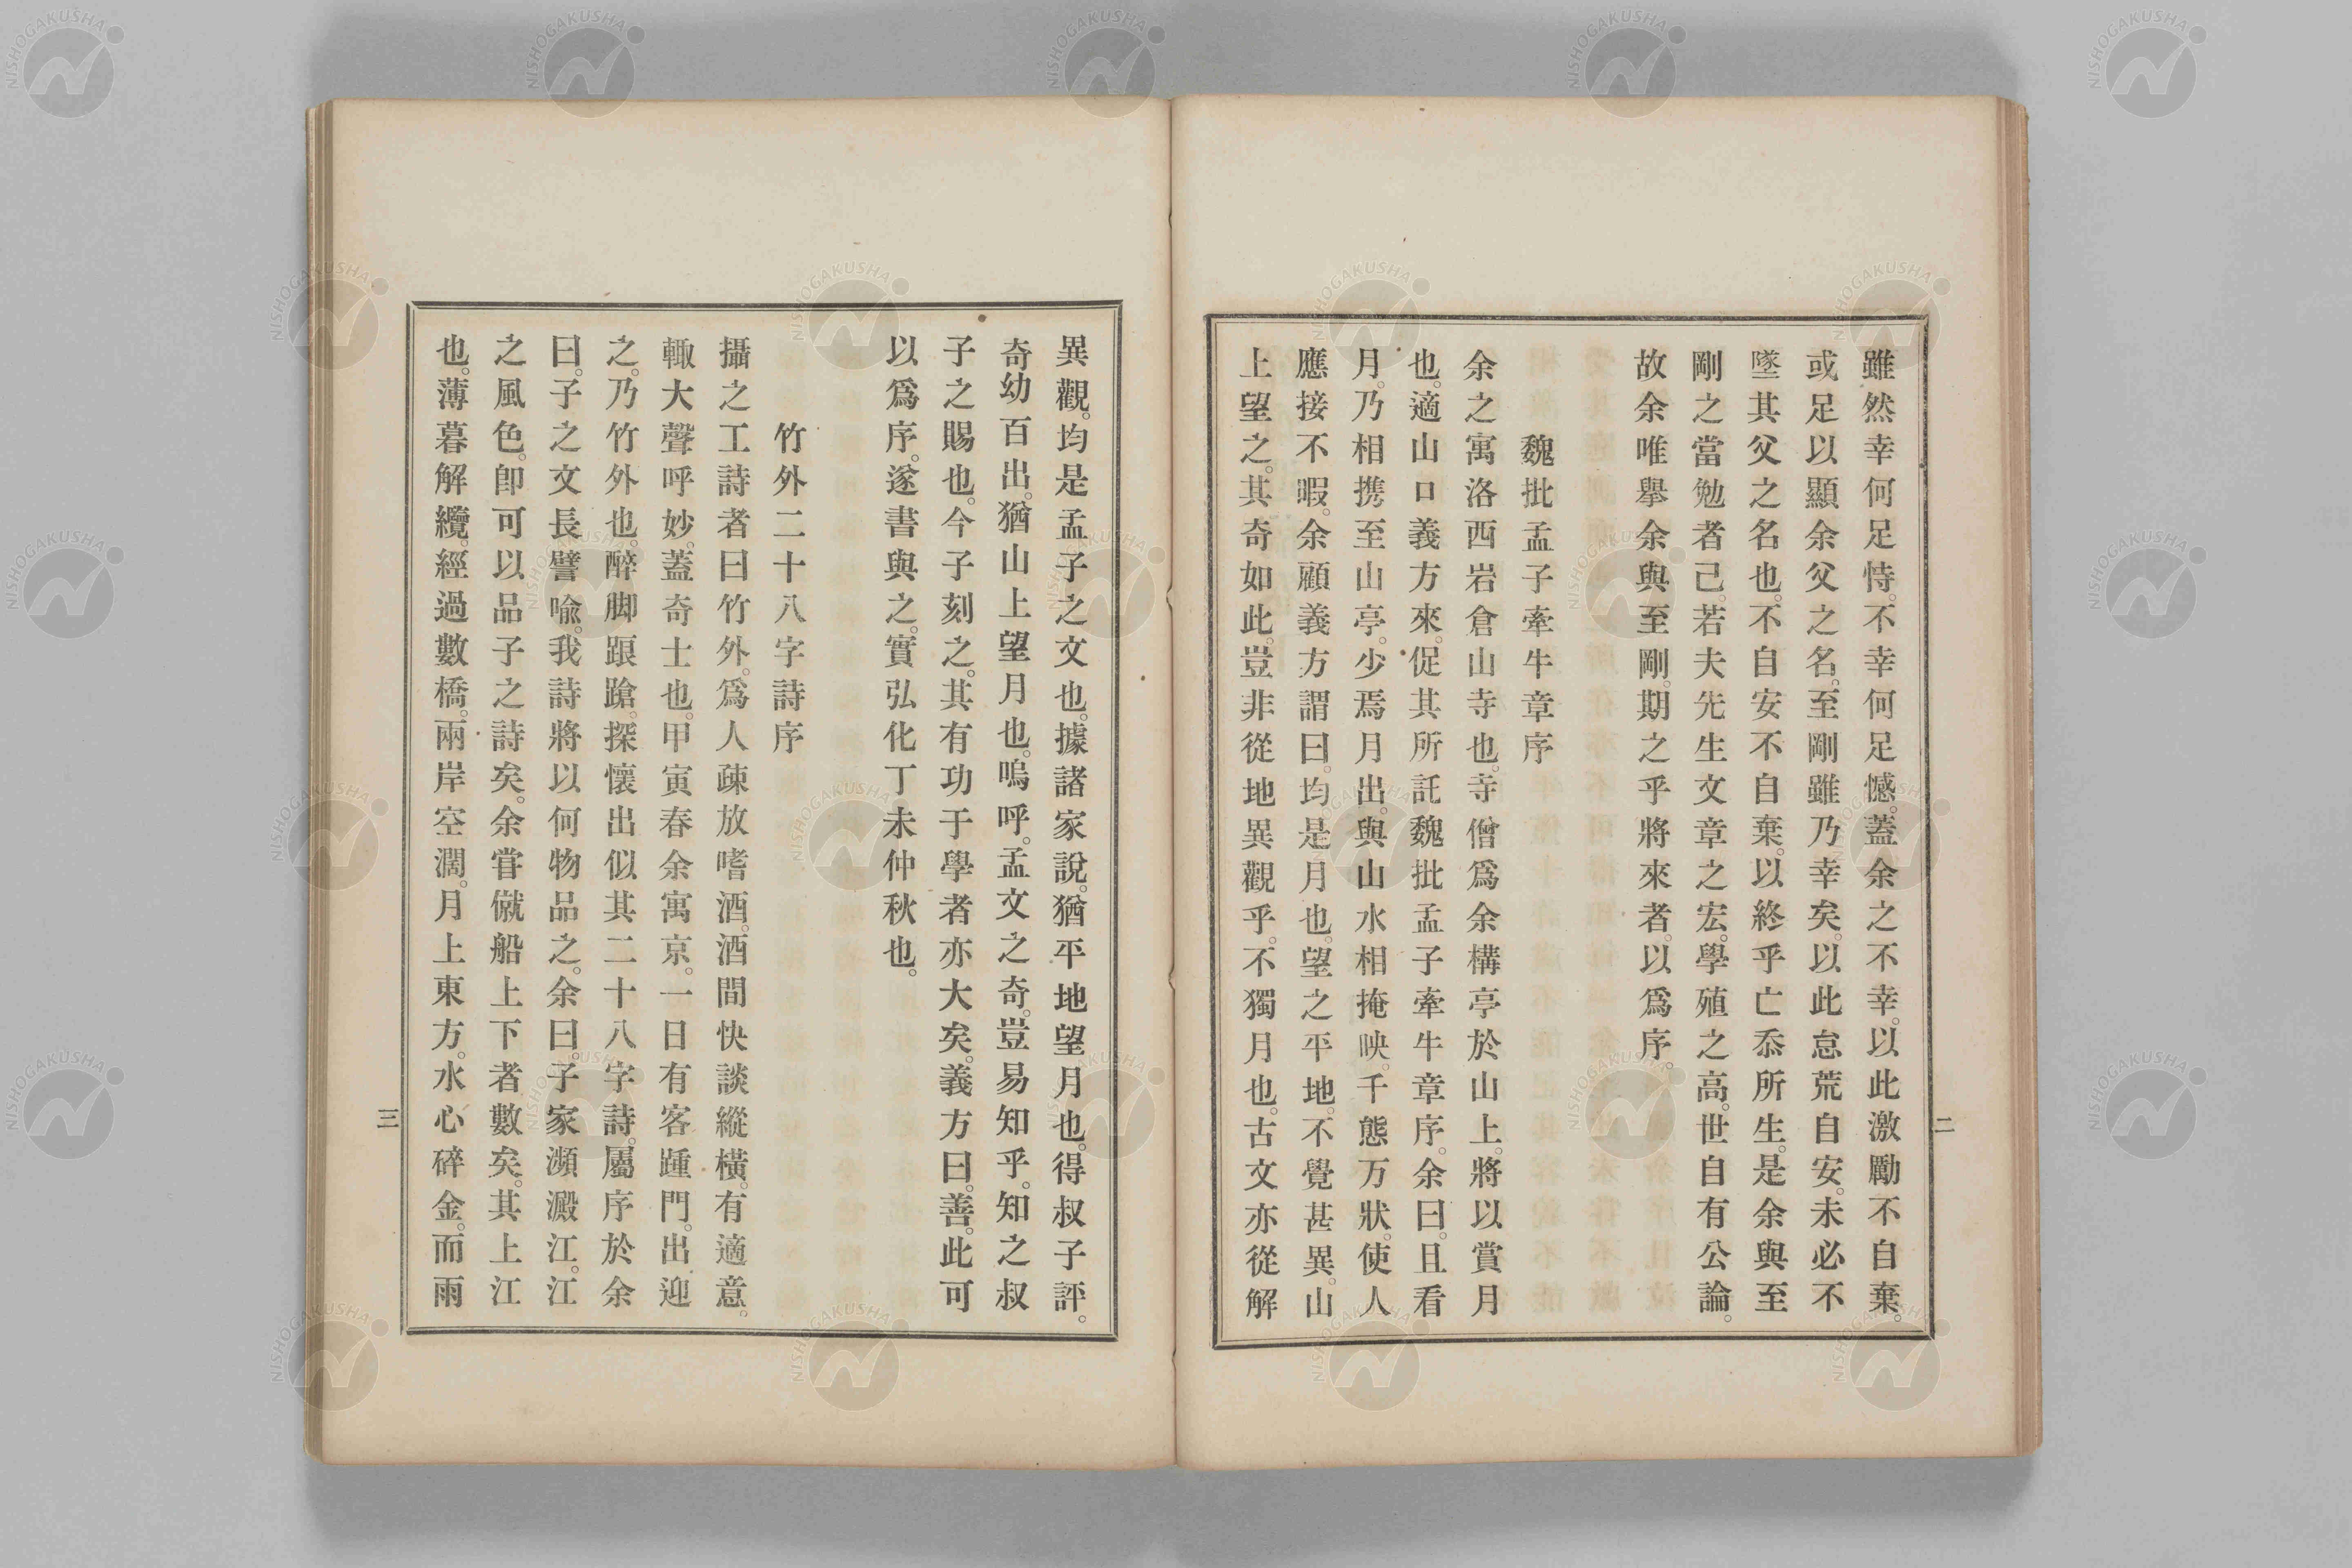 雖然幸何足恃。不幸何足憾。蓋余之不幸。以此激勵不自棄。
或足以顯余父之名。至剛雖乃幸矣。以此怠荒自安。未必不
墜其父之名也。不自安不自棄。以終乎亡忝所生。是余與至
剛之當勉者己。若夫先生文章之宏。學殖之高。世自有公論。
故余唯擧余與至剛。期之乎將來者。以爲序。
魏批孟子牽牛章序
余之寓洛西岩倉山寺也。寺僧爲余構亭於山上。將以賞月
也。適山口義方來。促其所託魏批孟子牽牛章序。余曰。且看
月。乃相携至山亭。少焉月出。與山水相掩映。千態万狀。使人
應接不暇。余顧義方謂曰。均是月也。望之平地。不覺甚異。山
上望之。其奇如此。豈非從地異觀乎。不獨月也。古文亦從解
二
異觀。均是孟子之文也。據諸家說。猶平地望月也。得叔子評。
奇幼百出。猶山上望月也。嗚呼。孟文之奇。豈易知乎。知之叔
子之賜也。今子刻之。其有功于學者亦大矣。義方曰。善。此可
以爲序。遂書與之。實弘化丁未仲秋也。
竹外二十八字詩序
攝之工詩者曰竹外。爲人疎放嗜酒。酒間快談縱橫。有適意。
輙大聲呼妙。蓋奇士也。甲寅春余寓京。一日有客踵門。出迎
之。乃竹外也。醉脚踉蹌。探懷出似其二十八字詩。屬序於余
曰。子之文長譬喩。我詩將以何物品之。余曰。子家瀕澱江。江
之風色。卽可以品子之詩矣。余甞僦船上下者數矣。其上江
也。薄暮解纜。經過數橋。兩岸空濶。月上東方。水心碎金。而雨
三
NISHOGAKUSHA